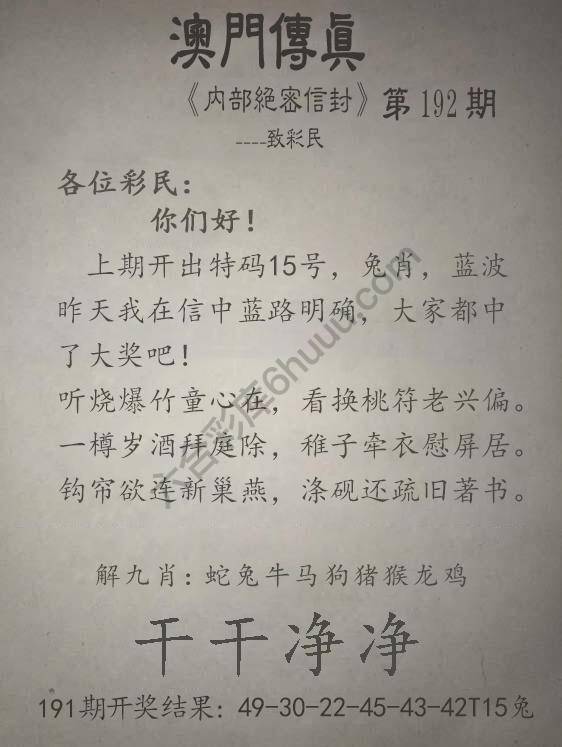 澳門傳眞
《内部絕密信封》第192期
----致彩民
各位彩民：
你们好！
上期开出特码15号，兔肖，蓝波
昨天我在信中蓝路明确，大家都中
了大奖吧！
听烧爆竹童心在，看换桃符老兴偏。
一樽岁酒拜庭除，稚子牵衣慰屏居。
钩帘欲连新巢燕，涤砚还疏旧著书。
六合彩库6huuu.com
解九肖：蛇兔牛马狗猪猴龙鸡
干干净净
191期开奖结果：49-30-22-45-43-42T15兔